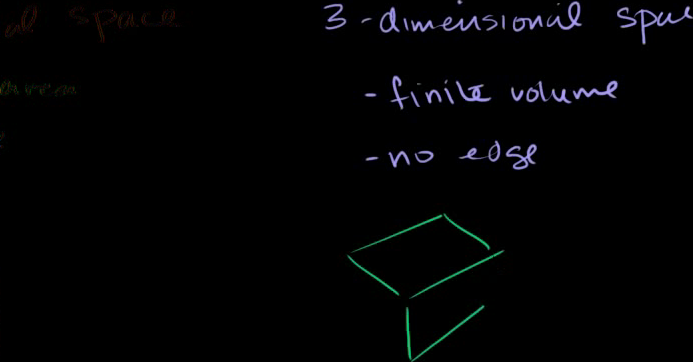 al space
3-dimensional spac
area
- finite volume
- no edge